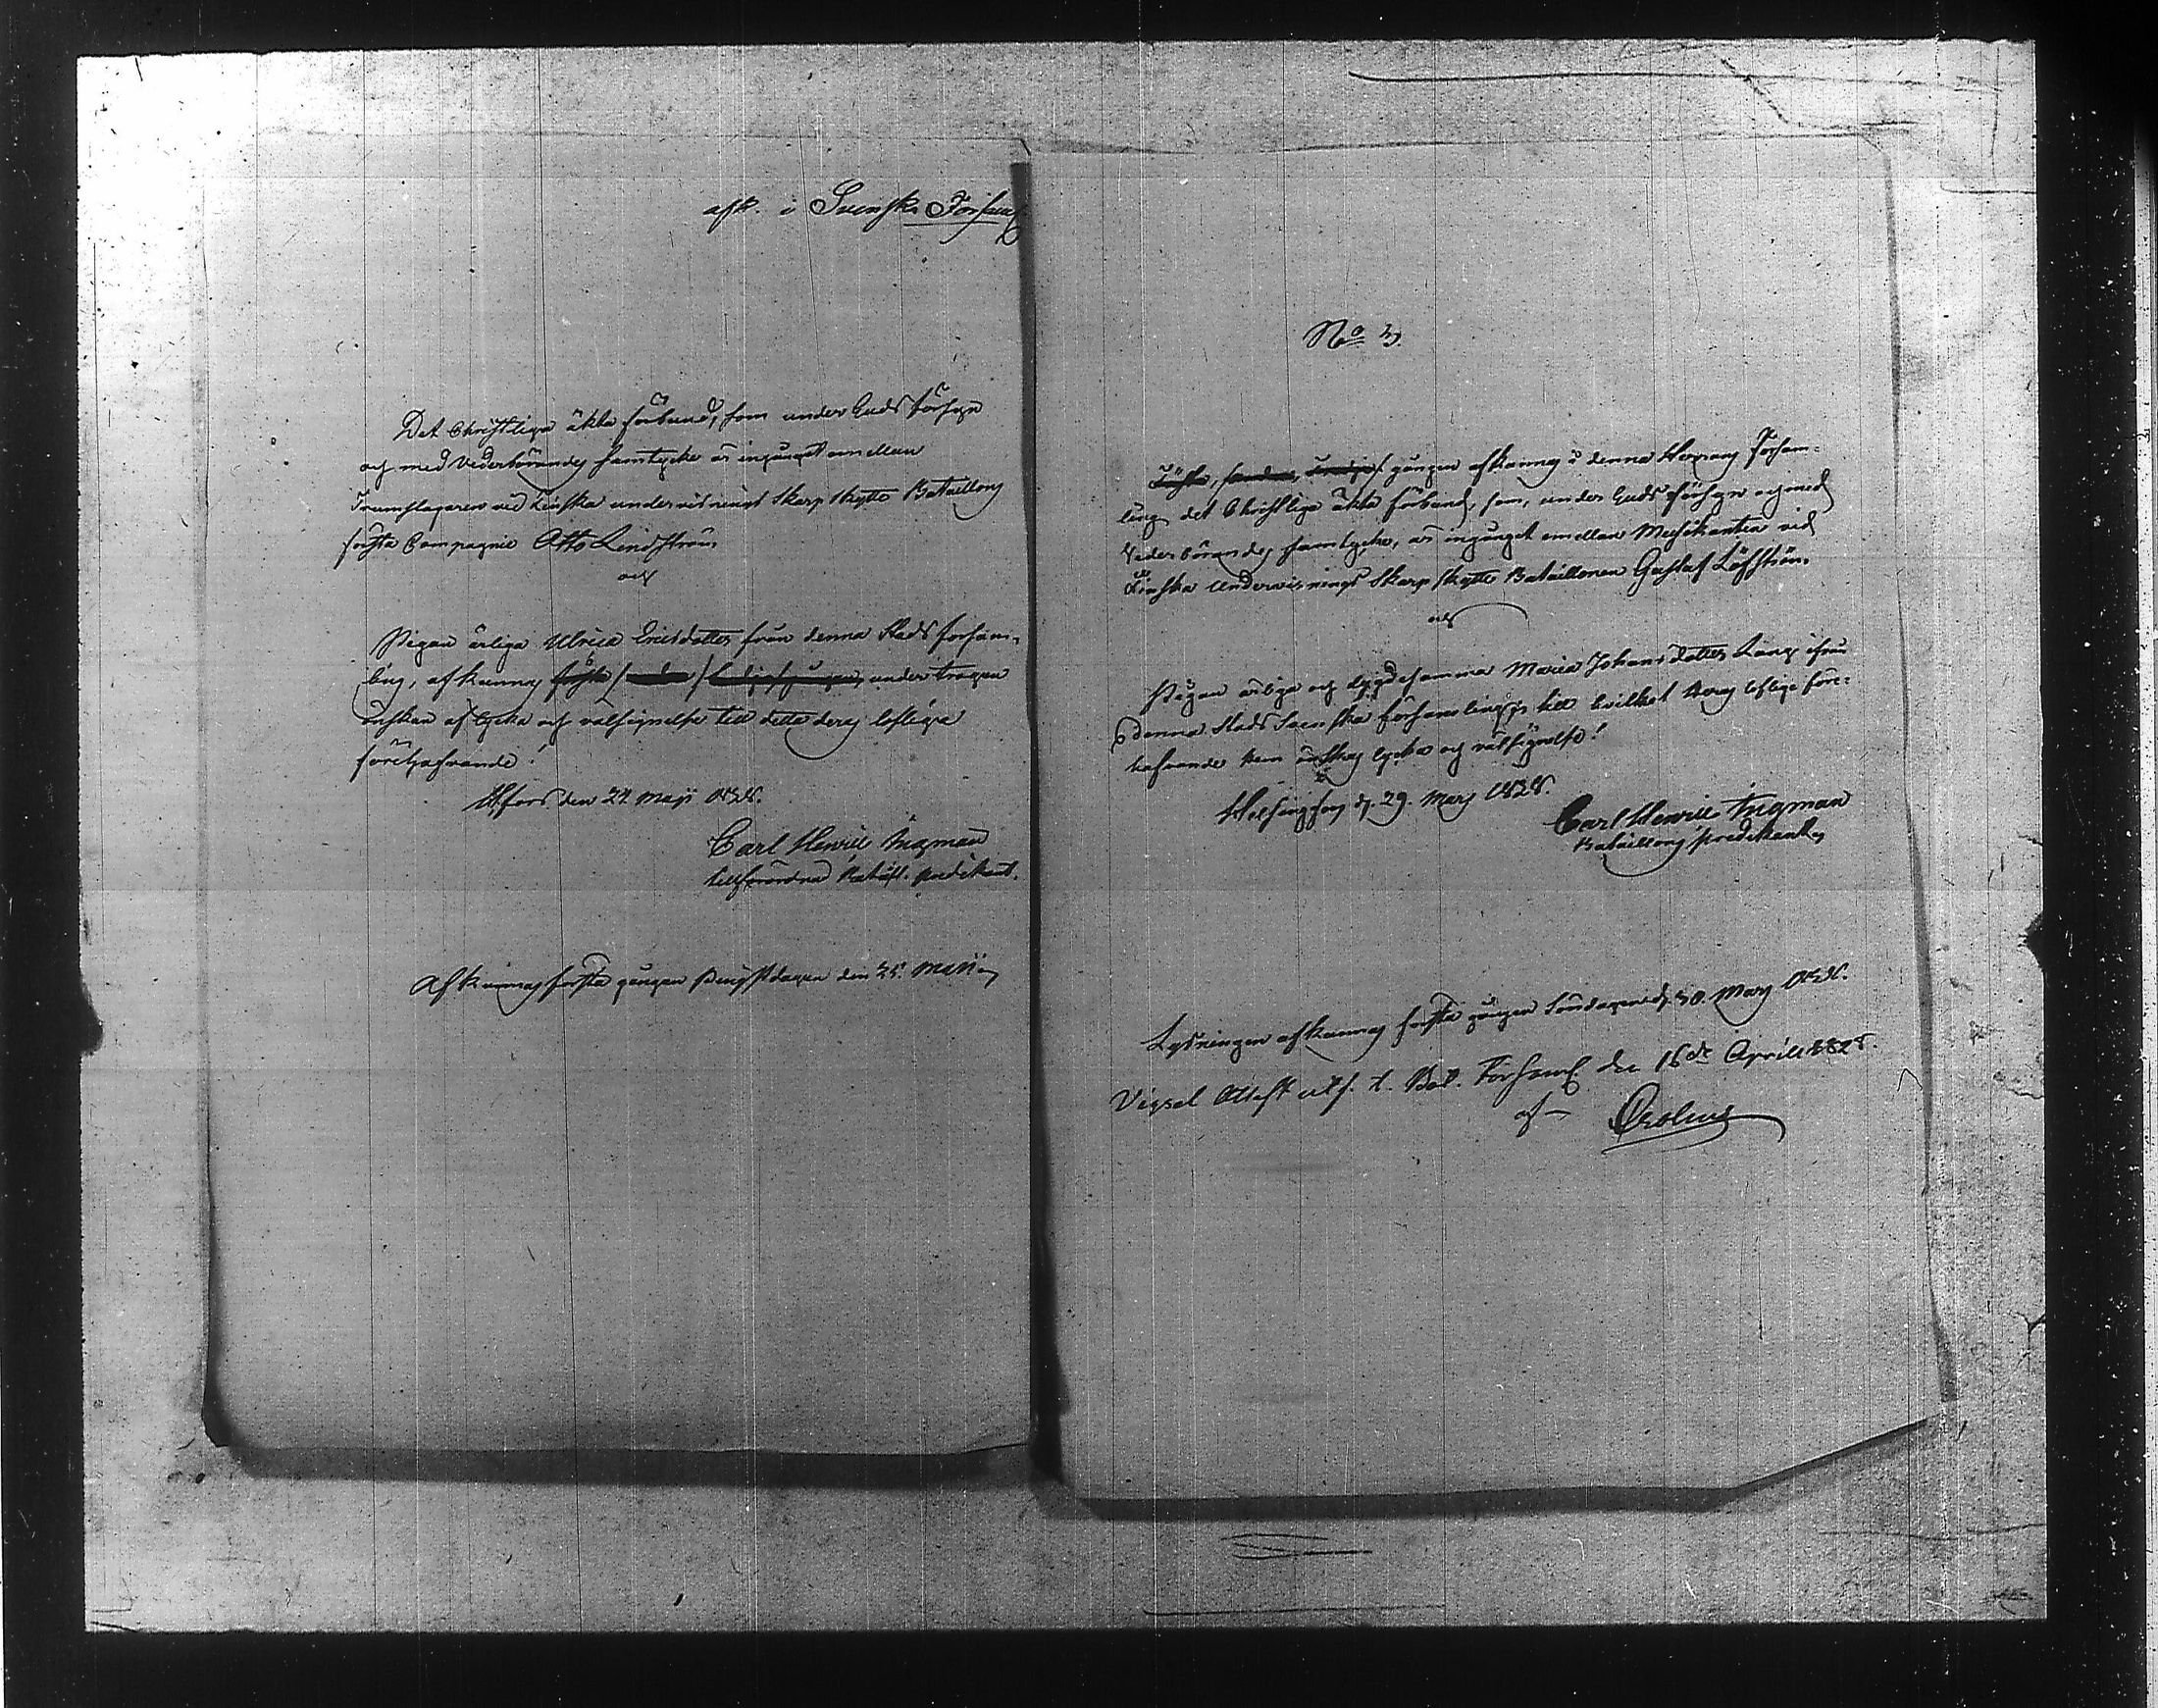 afk. i Svenska Församl.
Det Christliga äkta förbund, som under Guds försyn
och med Vederbörandes samtycke är ingånget emellan
Trumslagaren vid Finska undervisnings Skarp Skytte Bataillons
första Compagnie Otto Lindström
och
Pigan ärliga Ulrica Ericsdotter från denna Stads försam-
ling, afkunnas första andra tredje gången, under trogen
önskan af lycka och välsignelse till detta deras lofliga
företagande!
H:fors den 24 Maji 1828.
Carl Henric Ingman
tillförordnad Bataill. predikant.
Afkunnas första gången Pingstdagen den 25. Maji
No 3.
Första, andra, tredje gången afkunnas i denna Herrans Försam-
ling det Christliga äkta förbund, som, under Guds försyn och med
Vederbörandes samtycke, är ingånget emellan Musikanten vid
Finska Undervisnings Skarp Skytte Bataillonen Gustaf Löfström
och
Pigan ärliga och dygdesamma Maria Johansdotter Lång ifrån
denna Stads Svenska församling, till hvilket deras lofliga före-
hafvande dem önskas lycka och välsignelse!
Helsingfors d. 29. Mars 1828.
Carl Henric Ingman
Bataillons predikant
Lysningen afkunnas första gången Söndagen d. 30. Mars 1828.
Vigsel Attest utf. t. Bat. Församl. den 16de Aprill 1828.
af
Crolius